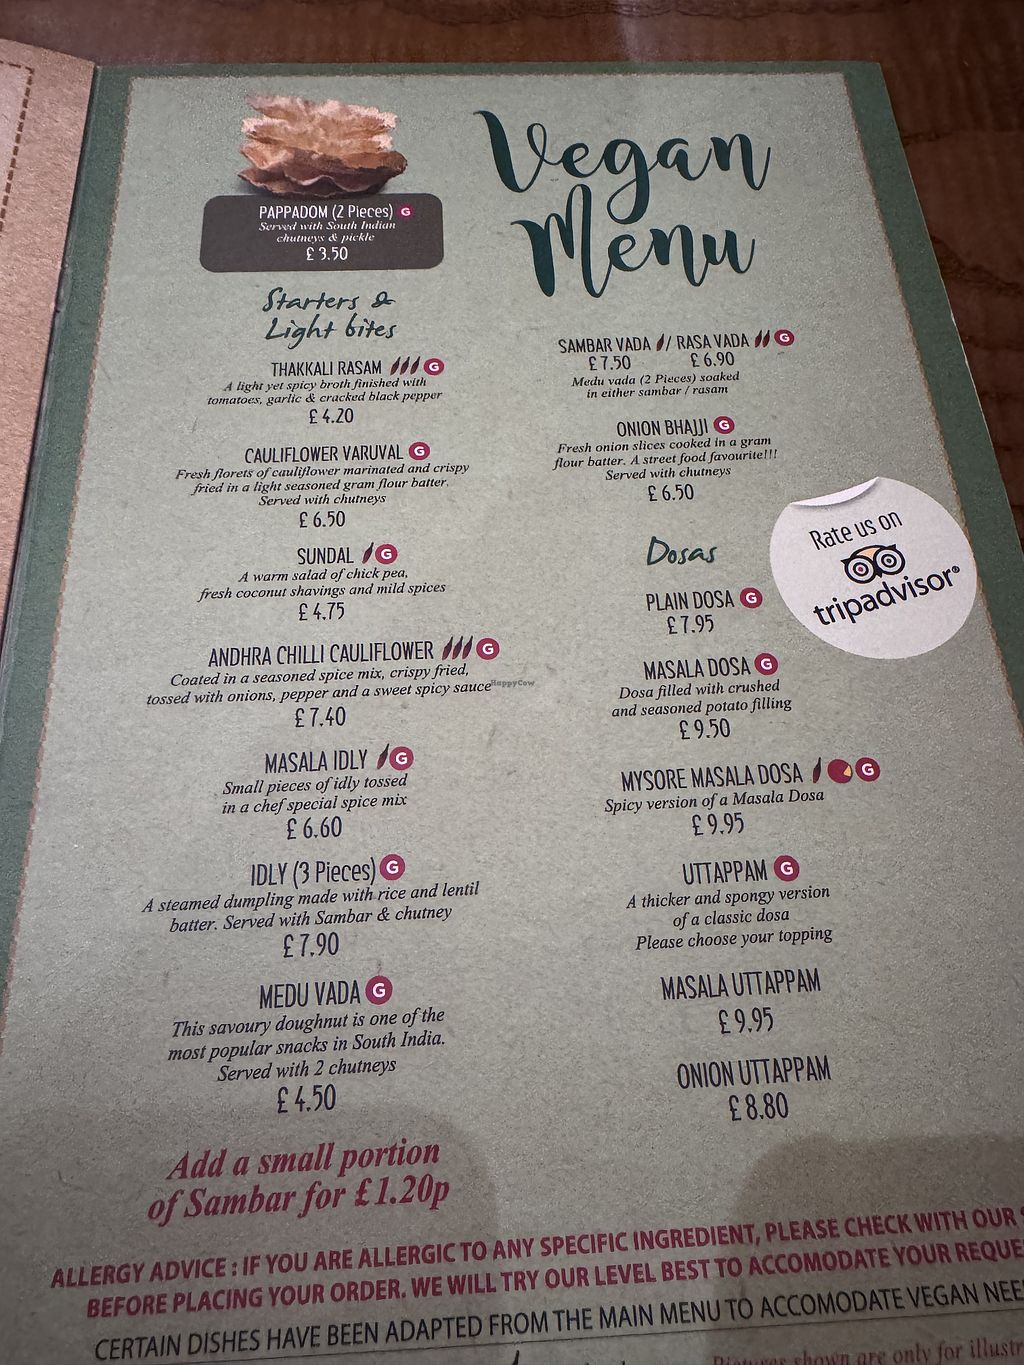 Vegan
Menu
PAPPADOM (2 Pieces) G
Served with South Indian
chutneys & pickle
£ 3.50
Starters &
Light bites
THAKKALI RASAM G
A light yet spicy broth finished with
tomatoes, garlic & cracked black pepper
£ 4.20
CAULIFLOWER VARUVAL G
Fresh florets of cauliflower marinated and crispy
fried in a light seasoned gram flour batter.
Served with chutneys
£ 6.50
SUNDAL G
A warm salad of chick pea,
fresh coconut shavings and mild spices
£ 4.75
ANDHRA CHILLI CAULIFLOWER G
Coated in a seasoned spice mix, crispy fried,
tossed with onions, pepper and a sweet spicy sauce
£ 7.40
MASALA IDLY G
Small pieces of idly tossed
in a chef special spice mix
£ 6.60
IDLY (3 Pieces) G
A steamed dumpling made with rice and lentil
batter. Served with Sambar & chutney
£ 7.90
MEDU VADA G
This savoury doughnut is one of the
most popular snacks in South India.
Served with 2 chutneys
£ 4.50
Add a small portion
of Sambar for £1.20p
SAMBAR VADA / RASA VADA G
£ 7.50 £ 6.90
Medu vada (2 Pieces) soaked
in either sambar / rasam
ONION BHAJJI G
Fresh onion slices cooked in a gram
flour batter. A street food favourite!!!
Served with chutneys
£ 6.50
Dosas
PLAIN DOSA G
£ 7.95
MASALA DOSA G
Dosa filled with crushed
and seasoned potato filling
£ 9.50
MYSORE MASALA DOSA G
Spicy version of a Masala Dosa
£ 9.95
UTTAPPAM G
A thicker and spongy version
of a classic dosa
Please choose your topping
MASALA UTTAPPAM
£ 9.95
ONION UTTAPPAM
£ 8.80
Rate us on
tripadvisor®
HappyCow
ALLERGY ADVICE : IF YOU ARE ALLERGIC TO ANY SPECIFIC INGREDIENT, PLEASE CHECK WITH OUR
BEFORE PLACING YOUR ORDER. WE WILL TRY OUR LEVEL BEST TO ACCOMODATE YOUR REQUE
CERTAIN DISHES HAVE BEEN ADAPTED FROM THE MAIN MENU TO ACCOMODATE VEGAN NEE
Pictures shown are only for illustr